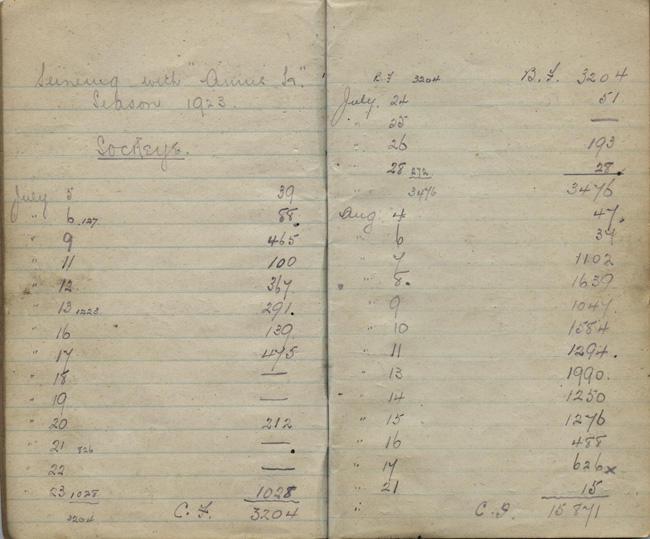 Seining with "Annie L."
Season 1923.
Sockeye.
July 5 39
" 6 127 88.
" 9 465
" 11 100
" 12 367
" 13 1223 291.
" 16 139
" 17 475
" 18 —
" 19 —
" 20 212
" 21 826 —
" 22 —
" 23 1028 1028
3204 C.F. 3204
B.F 3204 B.F. 3204
July 24 51
" 25 —
" 26 193
" 28 272 28.
" 3476 3476
Aug 4 47.
" 6 37
" 7 1102
" 8. 1639
" 9 1047
" 10 1584
" 11 1294.
" 13 1990.
" 14 1250
" 15 1276
" 16 488
" 17 626x
" 21 15
" C.F. 15871